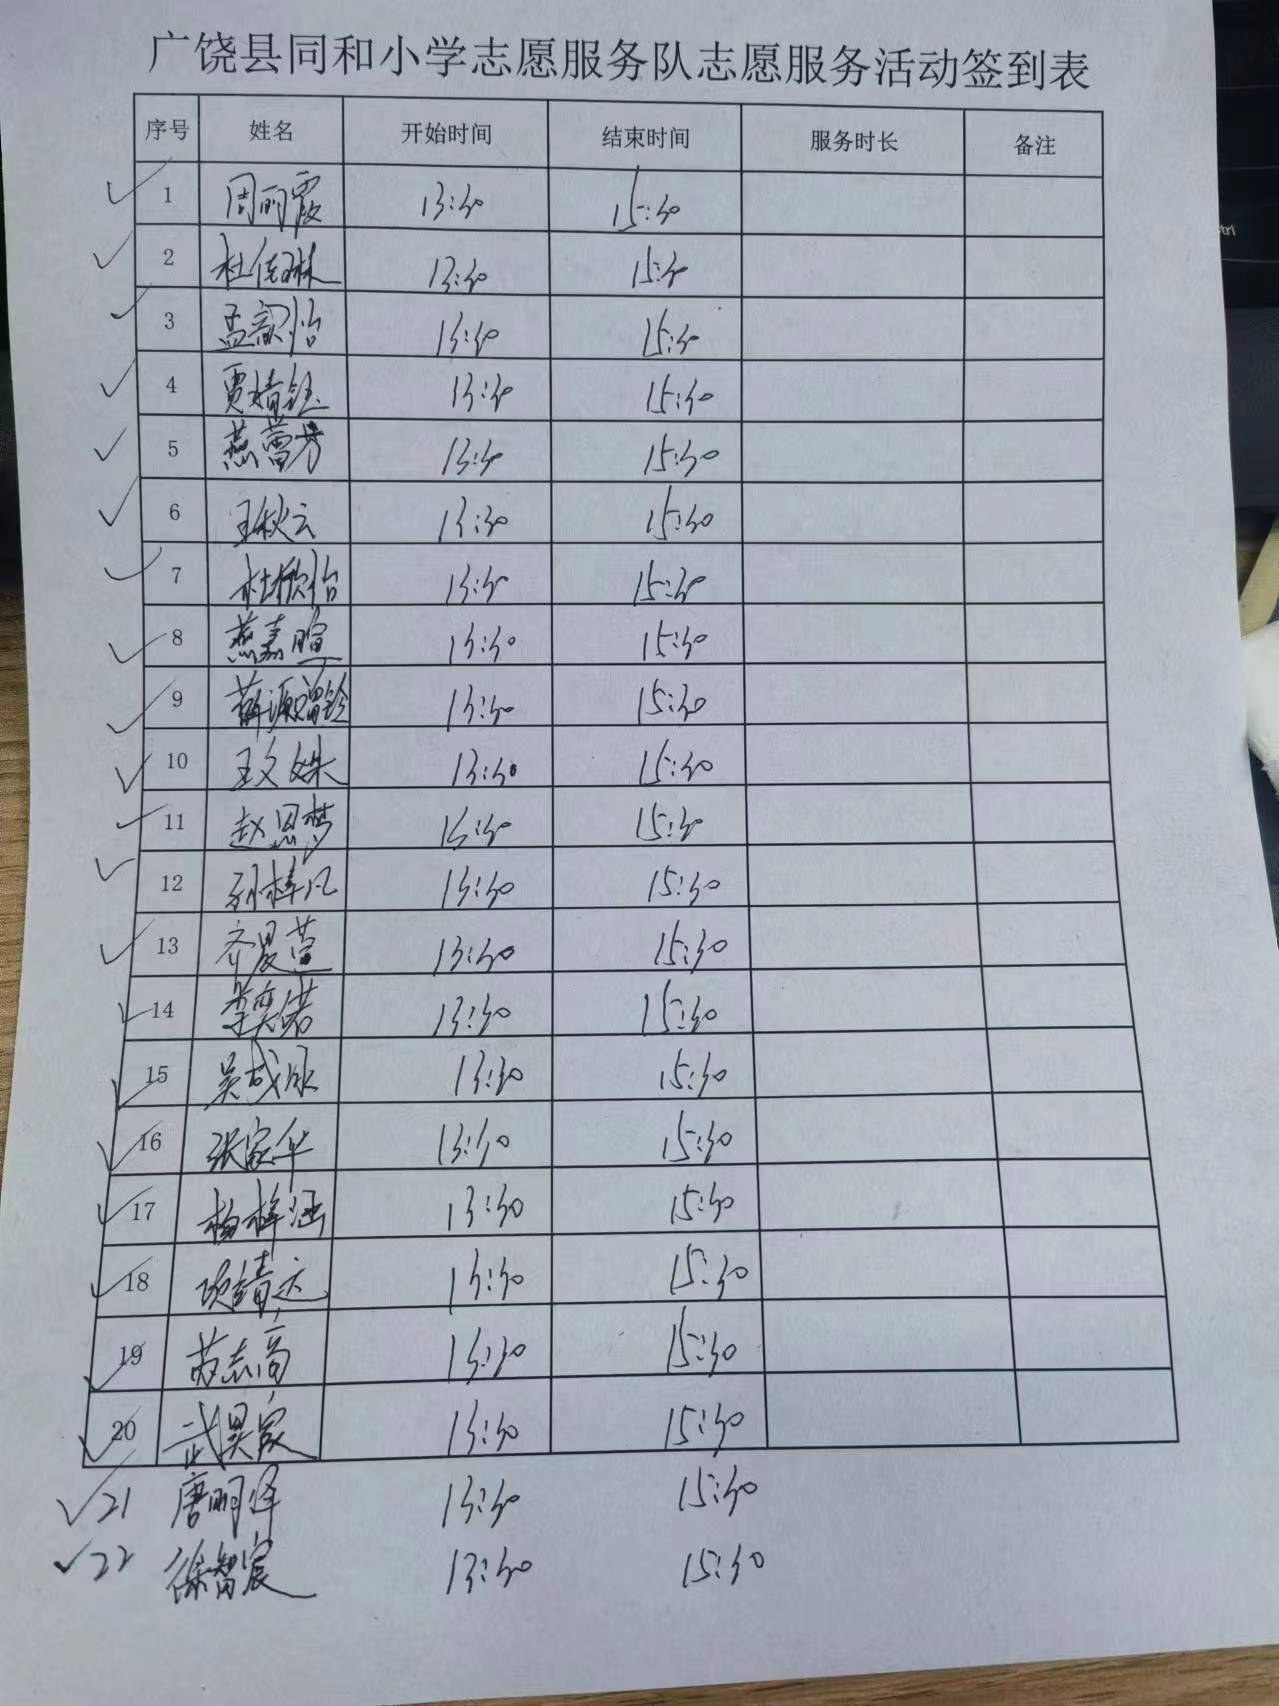 广饶县同和小学志愿服务队志愿服务活动签到表
序号 姓名 开始时间 结束时间 服务时长 备注
1 周丽霞 13:30 15:30
2 杜佳琳 13:30 15:30
3 孟韶怡 13:30 15:30
4 贾婧钰 13:30 15:30
5 燕蕾芳 13:30 15:30
6 王秋云 13:30 15:30
7 杜欣怡 13:30 15:30
8 燕嘉暄 13:30 15:30
9 薛源 13:30 15:30
10 王文姝 13:30 15:30
11 赵恩梦 13:30 15:30
12 孙梓凡 13:30 15:30
13 齐晏萱 13:30 15:30
14 李奕诺 13:30 15:30
15 吴成 13:30 15:30
16 张家华 13:30 15:30
17 杨梓涵 13:30 15:30
18 项靖 13:30 15:30
19 苏志高 13:30 15:30
20 武昊宸 13:30 15:30
21 唐明泽 13:30 15:30
22 徐智宸 13:30 15:30